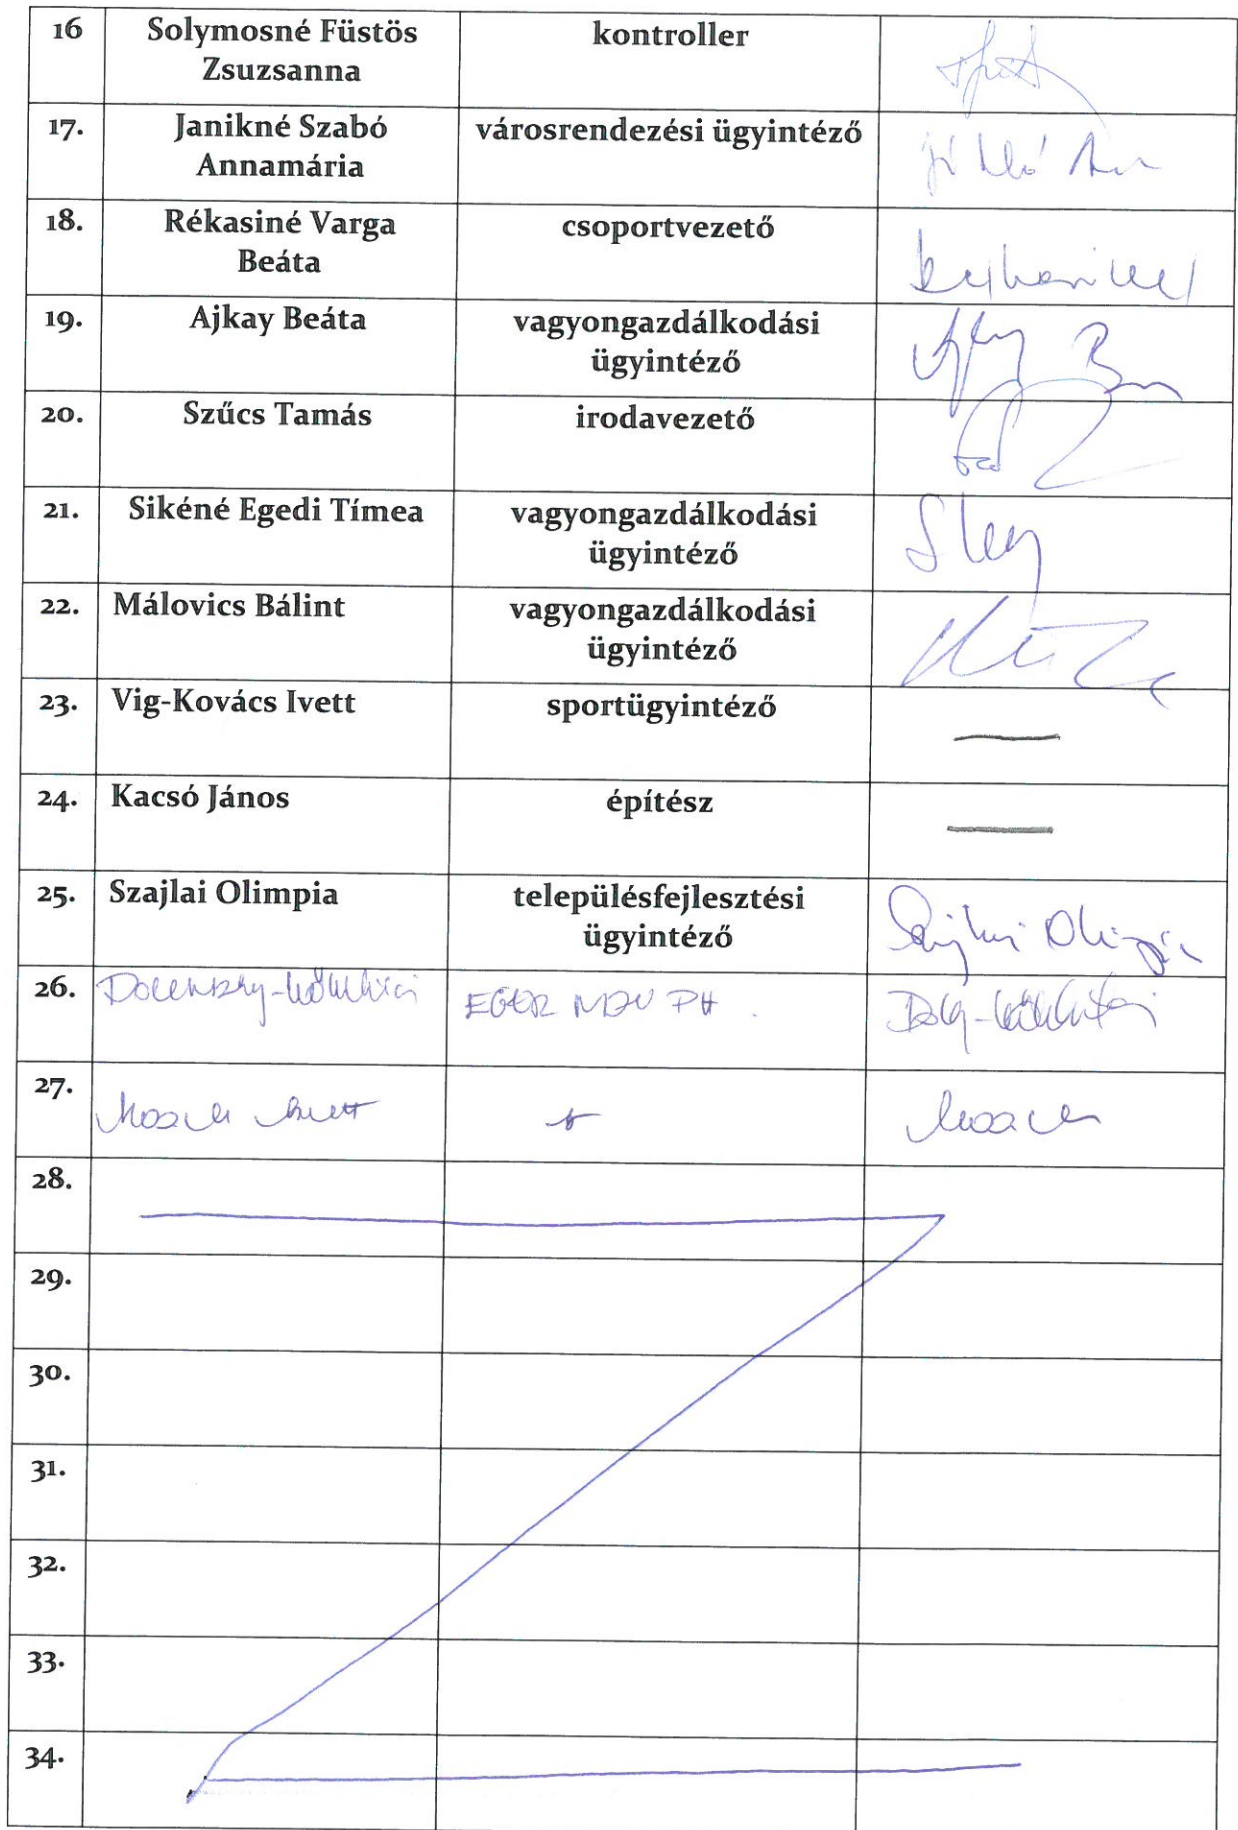 16 Solymosné Füstös kontroller
Zsuzsanna
17. Janikné Szabó városrendezési ügyintéző
Annamária
18. Rékasiné Varga csoportvezető
Beáta
19. Ajkay Beáta vagyongazdálkodási
ügyintéző
20. Szűcs Tamás irodavezető
21. Sikéné Egedi Tímea vagyongazdálkodási
ügyintéző
22. Málovics Bálint vagyongazdálkodási
ügyintéző
23. Vig-Kovács Ivett sportügyintéző
24. Kacsó János építész
25. Szajlai Olimpia településfejlesztési
ügyintéző
26. EGER PH
27.
28.
29.
30.
31.
32.
33.
34.